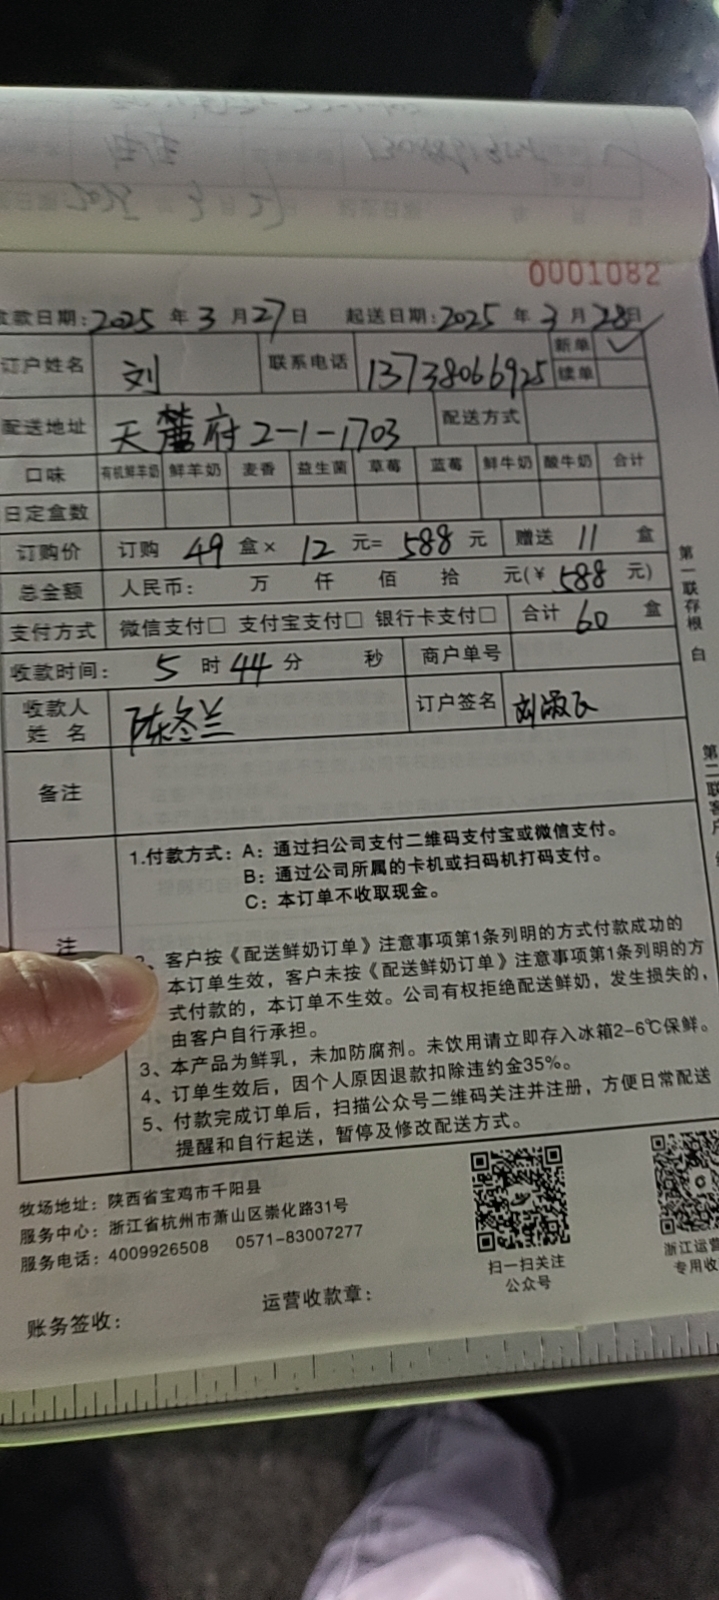 0001082
收款日期:2025 年 3 月 27 日 起送日期:2025 年 3 月 28日
订户姓名 刘 联系电话 13738066925 新单 ✓
续单
配送地址 天麓府 2-1-1703 配送方式
口味 有机鲜羊奶 鲜羊奶 麦香 益生菌 草莓 蓝莓 鲜牛奶 酸牛奶 合计
日定盒数
订购价 订购 49 盒× 12 元= 588 元 赠送 11 盒
总金额 人民币: 万 仟 佰 拾 元(¥ 588 元)
支付方式 微信支付□ 支付宝支付□ 银行卡支付□ 合计 60 盒
收款时间: 5 时 44 分 秒 商户单号
收款人 姓名 陈冬兰 订户签名 刘淑
备注
第一联存根 白
第二联客户
注
1.付款方式:A:通过扫公司支付二维码支付宝或微信支付。
B:通过公司所属的卡机或扫码机打码支付。
C:本订单不收取现金。
、客户按《配送鲜奶订单》注意事项第1条列明的方式付款成功的
本订单生效,客户未按《配送鲜奶订单》注意事项第1条列明的方
式付款的,本订单不生效。公司有权拒绝配送鲜奶,发生损失的,
由客户自行承担。
3、本产品为鲜乳,未加防腐剂。未饮用请立即存入冰箱2-6℃保鲜。
4、订单生效后,因个人原因退款扣除违约金35%。
5、付款完成订单后,扫描公众号二维码关注并注册,方便日常配送
提醒和自行起送,暂停及修改配送方式。
牧场地址:陕西省宝鸡市千阳县
服务中心:浙江省杭州市萧山区崇化路31号
服务电话:4009926508 0571-83007277
扫一扫关注
公众号
浙江运营
专用收
账务签收: 运营收款章: